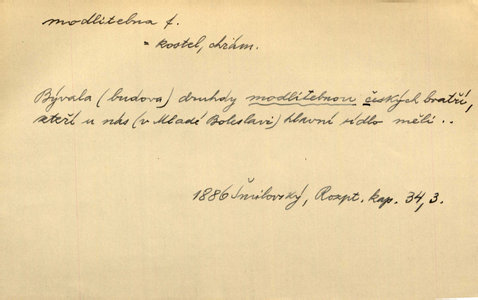 modlitebna f.
= kostel, chrám.
Bývala (budova) druhdy modlitebnou českých bratří,
kteří u nás (v Mladé Boleslavi) hlavní sídlo měli ..
1886 Šmilovský, Rozpt. kap. 34, 3.